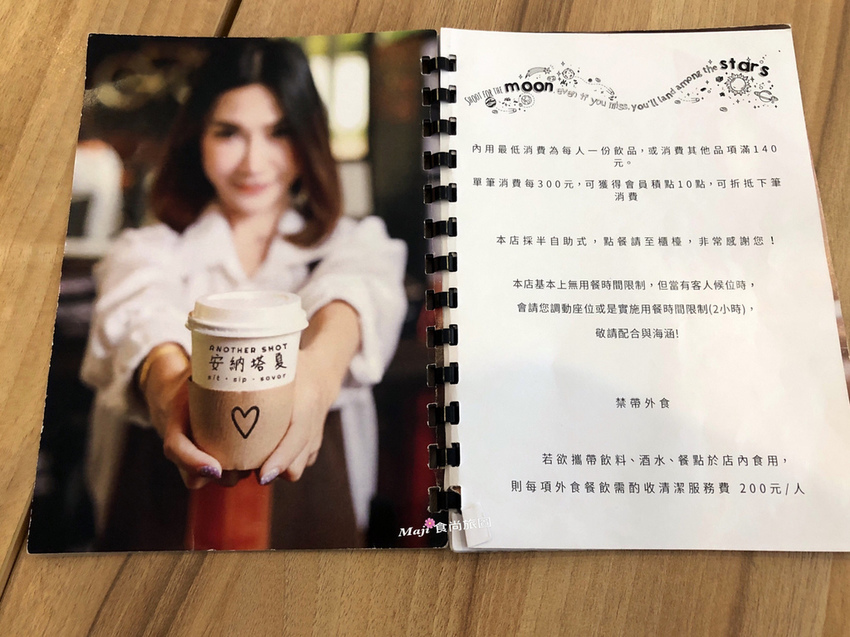 ANOTHER SHOT
安納塔夏
sit · sip · savor
Maji 食尚旅的
SHOOT FOR THE moon even if you miss, you'll land among the stars
內用最低消費為每人一份飲品，或消費其他品項滿140
元。
單筆消費每300元，可獲得會員積點10點，可折抵下筆
消費
本店採半自助式，點餐請至櫃檯，非常感謝您！
本店基本上無用餐時間限制，但當有客人候位時，
會請您調動座位或是實施用餐時間限制(2小時)，
敬請配合與海涵!
禁帶外食
若欲攜帶飲料、酒水、餐點於店內食用，
則每項外食餐飲需酌收清潔服務費 200元/人